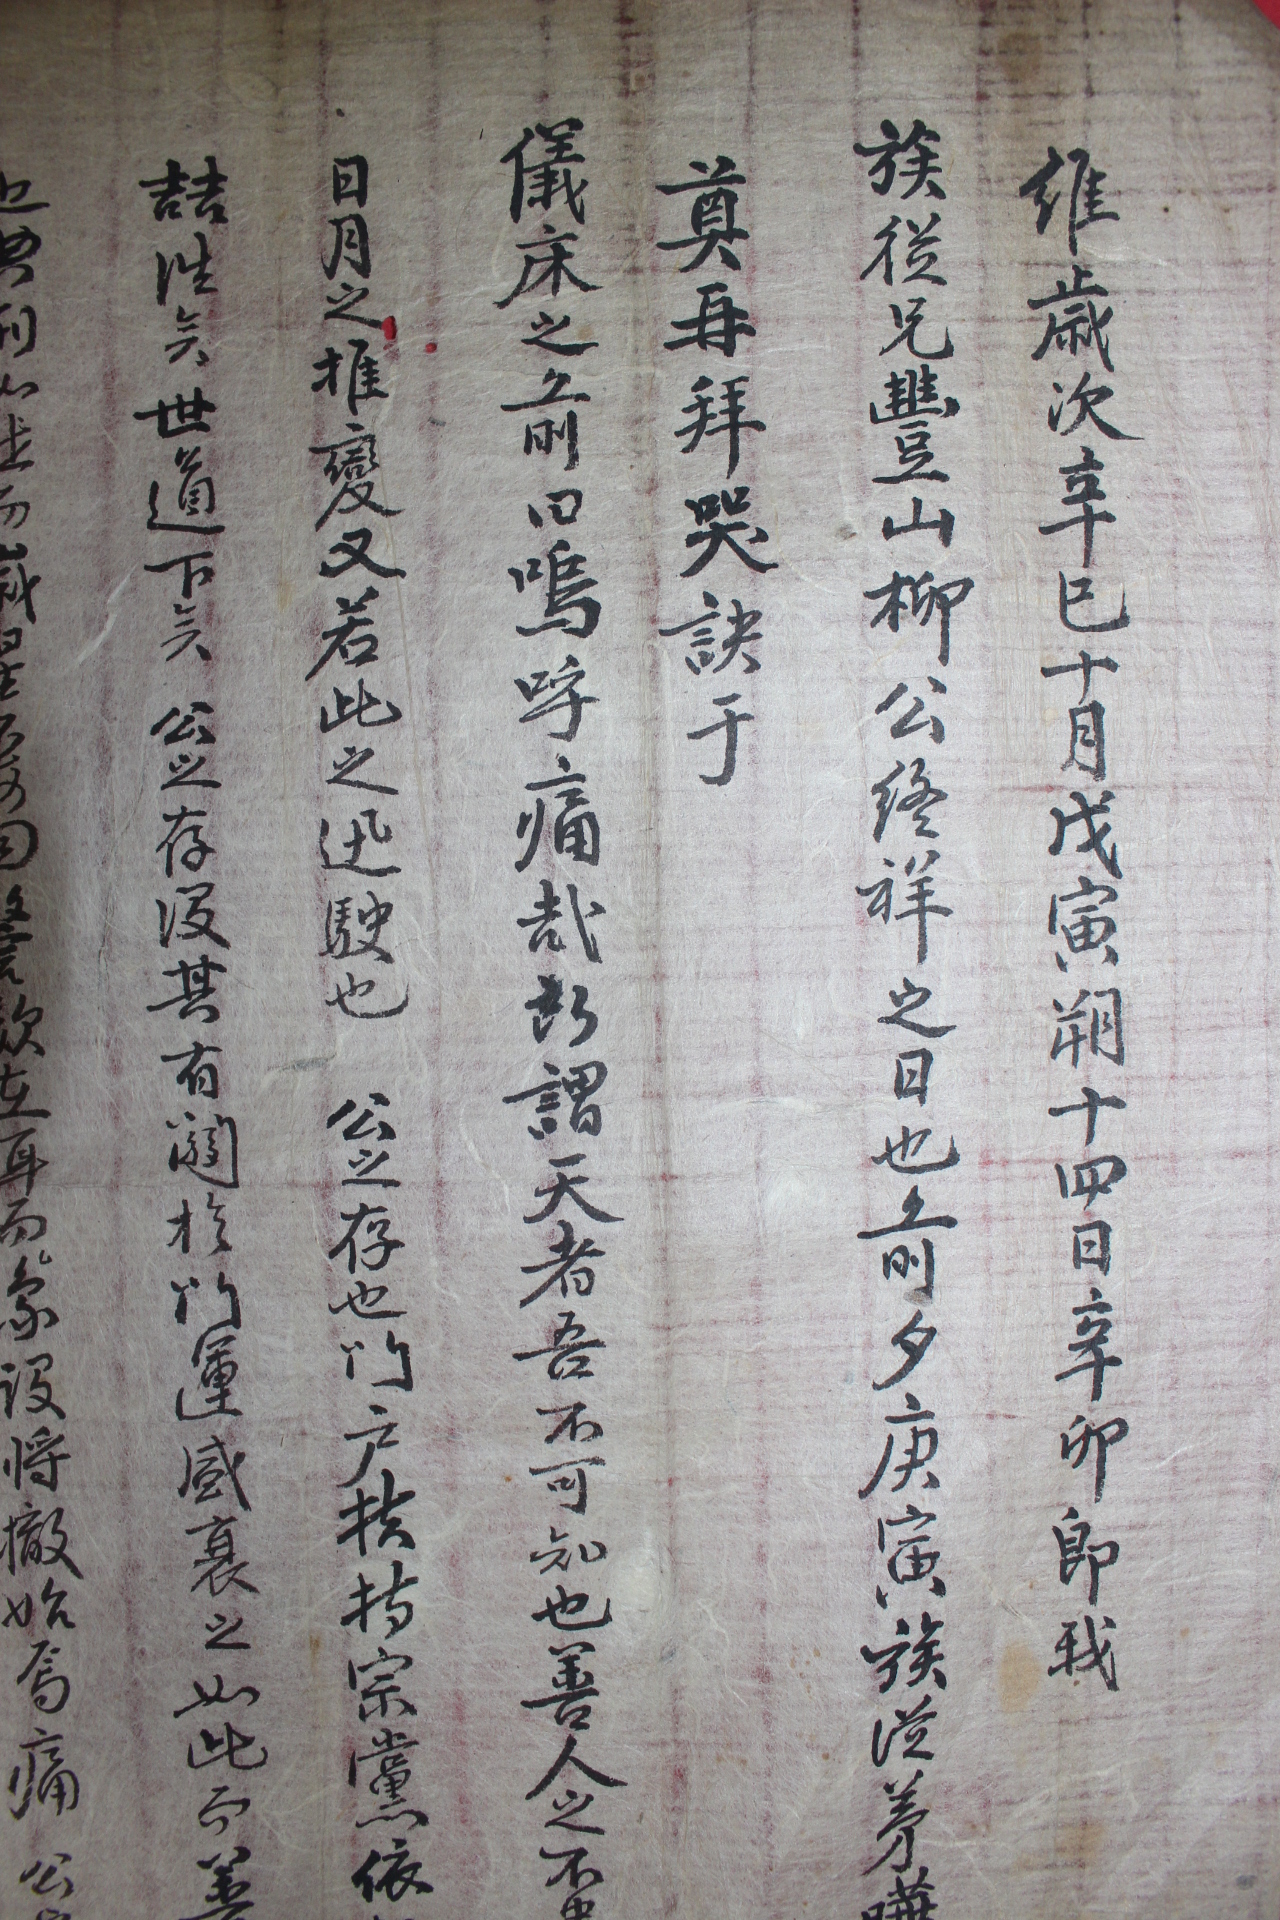 維歲次辛巳十月戊寅朔十四日辛卯卽我
族從兄豐山柳公終祥之日也前夕庚寅族從弟
奠再拜哭訣于
儀床之前曰嗚呼痛哉所謂天者吾不可知也善人之不
日月之推變又若此之迅駛也 公之存也門户扶持宗黨依
喆 矣世道下矣 公之存沒其有關於門運盛衰之如此而善
典刑 而歲星 謦欬在耳而象設將撤始焉痛 公